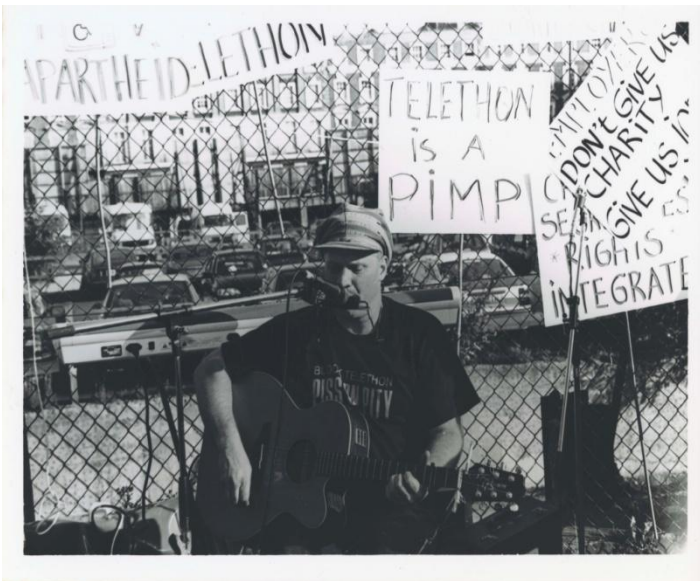 APARTHEID-LETHON
TELETHON
iS A
PiMP
DON'T GIVE US
CHARITY
GIVE US
RIGHTS
iNTEGRATE
TELETHON
PISS ON PITY